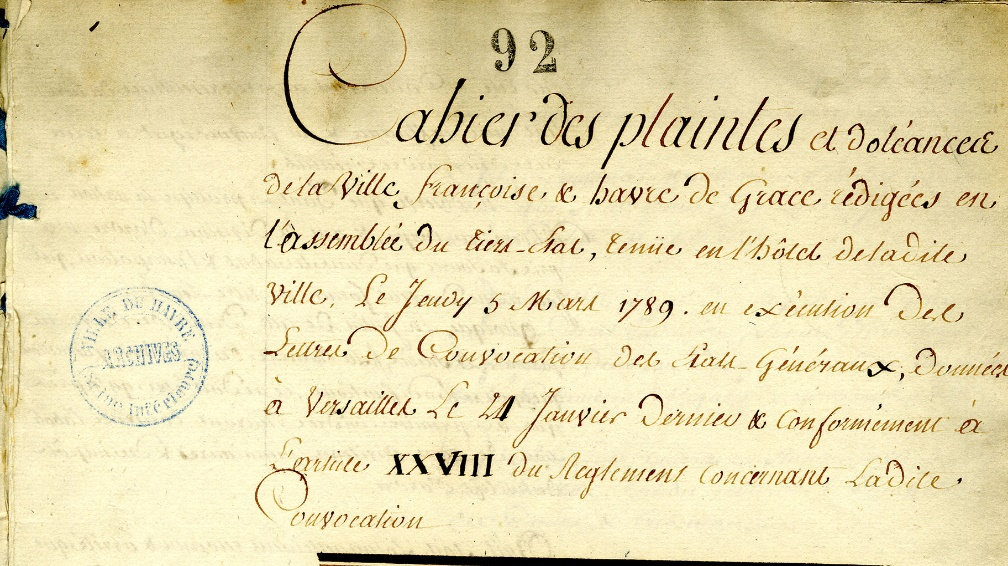 92
Cahier des plaintes et doléances
de la Ville françoise & havre de Grace rédigées en
l'assemblée du tiers-Etat, tenüe en l'hôtel de ladite
ville, Le Jeudy 5 Mars 1789. en exécution des
Lettres de Convocation des Etats Généraux, données
à Versailles Le 24 Janvier dernier & conformément à
L'article XXVIII du Reglement concernant Ladite
Convocation
VILLE DU HAVRE
ARCHIVES
(Seine Inférieure)